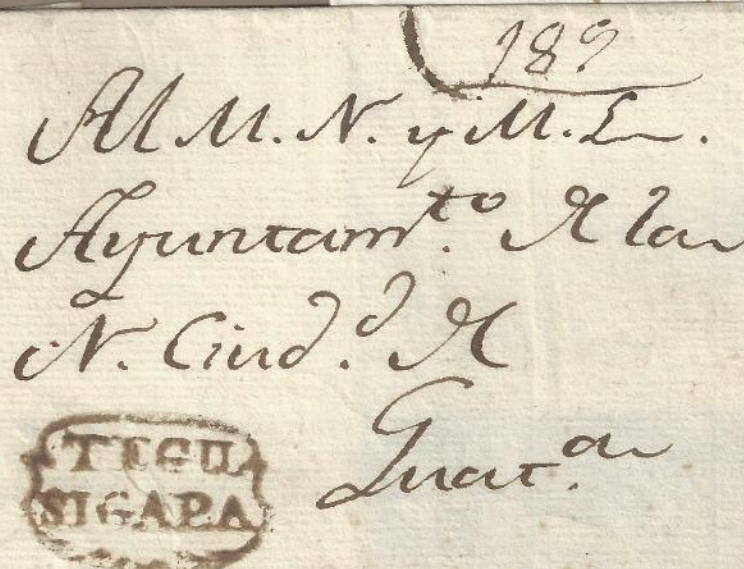 189
Al M. N. y M. L.
Ayuntam.to de la
N. Ciud.d de
Guat.a
TEGU
SIGAPA